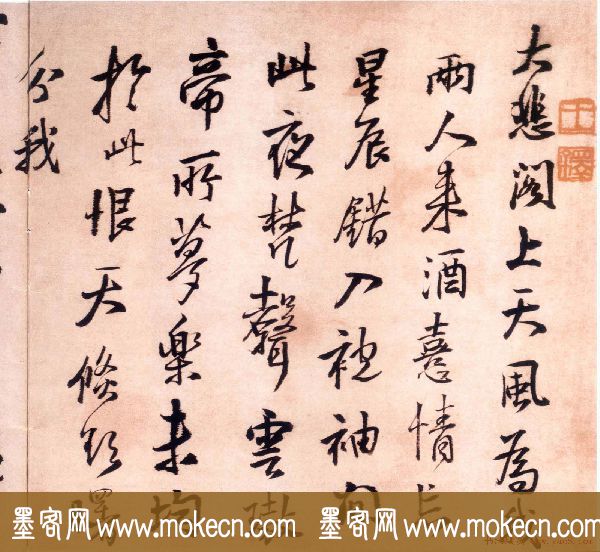 大悲閣上天風為我
兩人来酒意情
星辰錯入袍袖
此夜梵聲雲
帝所夢樂未均
於此恨天
分我
王鐸
墨客网www.mokecn.com 墨客网www.mokecn.com